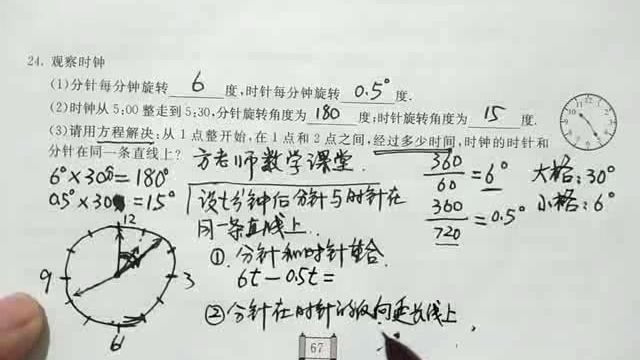 24. 观察时钟
(1)分针每分钟旋转 6 度,时针每分钟旋转 0.5° 度.
(2)时钟从 5:00 整走到 5:30,分针旋转角度为 180 度;时针旋转角度为 15 度.
(3)请用方程解决:从 1 点整开始,在 1 点和 2 点之间,经过多少时间,时钟的时针和
分针在同一条直线上?
方老师数学课堂.
6°×30=180°
0.5°×30=15°
360/60=6°
360/720=0.5°
大格:30°
小格:6°
设t分钟后分针与时针在
同一条直线上.
①.分针和时针重合.
6t-0.5t=
②分针在时针的反向延长线上,
12
9
3
6
67